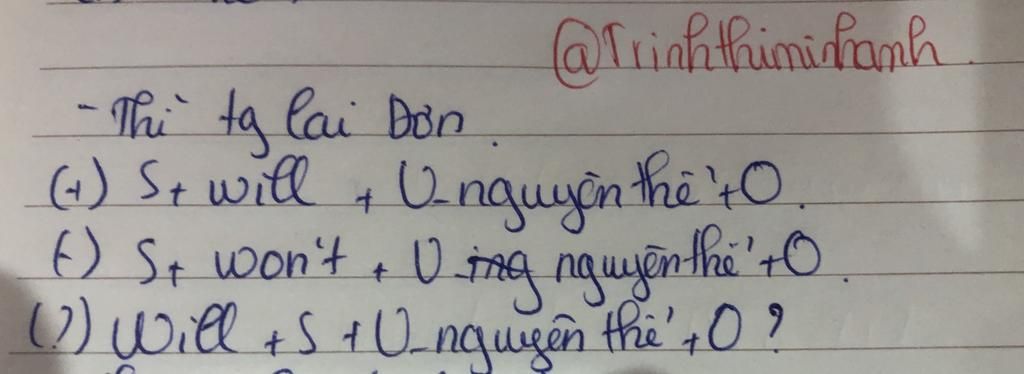 @Trinhthiminhanh.
- Thì tg lai Đơn.
(+) S + will + V_nguyên thể + O.
(-) S + won't + V_ing nguyên thể + O.
(?) Will + S + V_nguyên thể + O ?